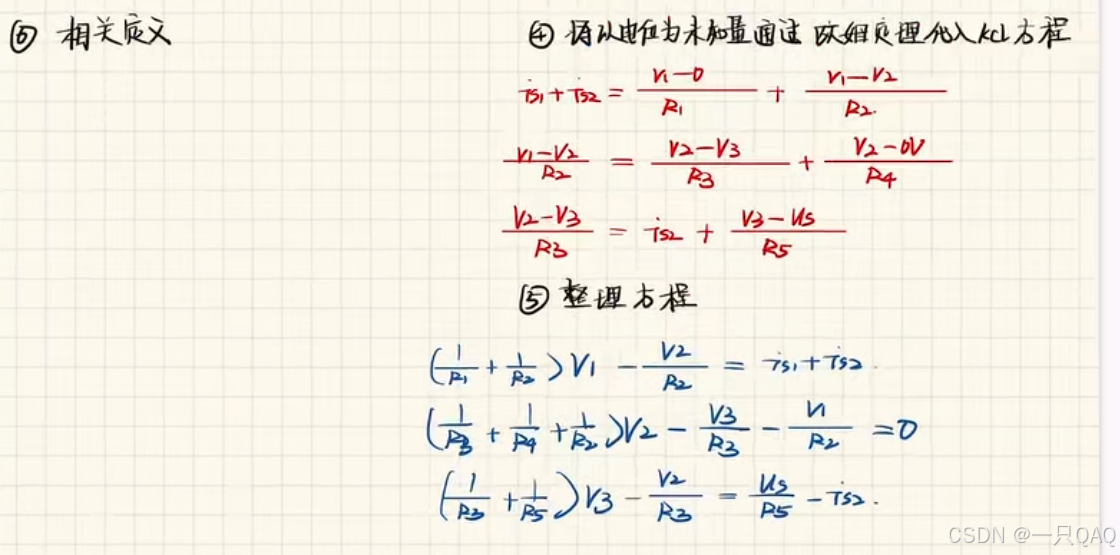 ⑥ 相关定义
④ 将以电位为未知量通过 欧姆定理代入KCL方程
is1 + is2 = (V1-0)/R1 + (V1-V2)/R2.
(V1-V2)/R2 = (V2-V3)/R3 + (V2-0V)/R4
(V2-V3)/R3 = is2 + (V3-Us)/R5
⑤ 整理方程
(1/R1 + 1/R2)V1 - V2/R2 = is1 + is2.
(1/R3 + 1/R4 + 1/R2)V2 - V3/R3 - V1/R2 = 0
(1/R3 + 1/R5)V3 - V2/R3 = Us/R5 - is2.
CSDN @一只QAQ